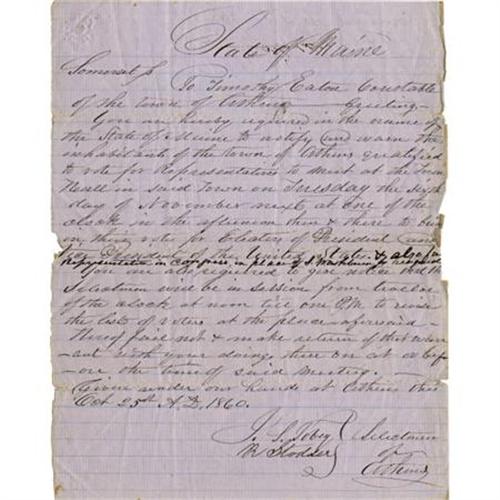 State of Maine
Somerset ss To Timothy Eaton Constable
of the town of Athens Greeting,
You are hereby required in the name of
the State of Maine to notify and warn the
inhabitants of the town of Athens qualified
to vote for Representatives to meet at the Town
Hall in said Town on Tuesday the sixth
day of November next at one of the
clock in the afternoon then & there to bring
in their votes for Electors of President and
Vice President of the United States & also for
Representative in Congress in place of
You are also required to give notice that the
Selectmen will be in session from twelve
of the clock at noon till one P.M. to revise
the lists of voters at the place aforesaid
Hereof fail not & make return of this warr-
ant with your doings thereon at or bef-
ore the time of said meeting.
Given under our hands at Athens this
Oct 25th A.D. 1860.
J. S. Tobey Selectmen
of
Athens